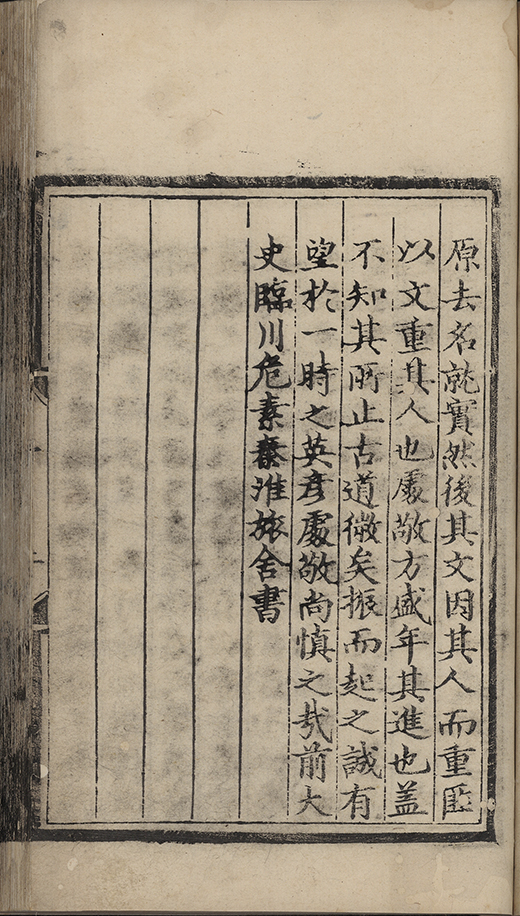 原去名就實然後其文因其人而重匪
以文重其人也處敬方盛年其進也蓋
不知其所止古道微矣振而起之誠有
望於一時之英彦處敬尚慎之㦲前大
史臨川危素秦淮旅舍書